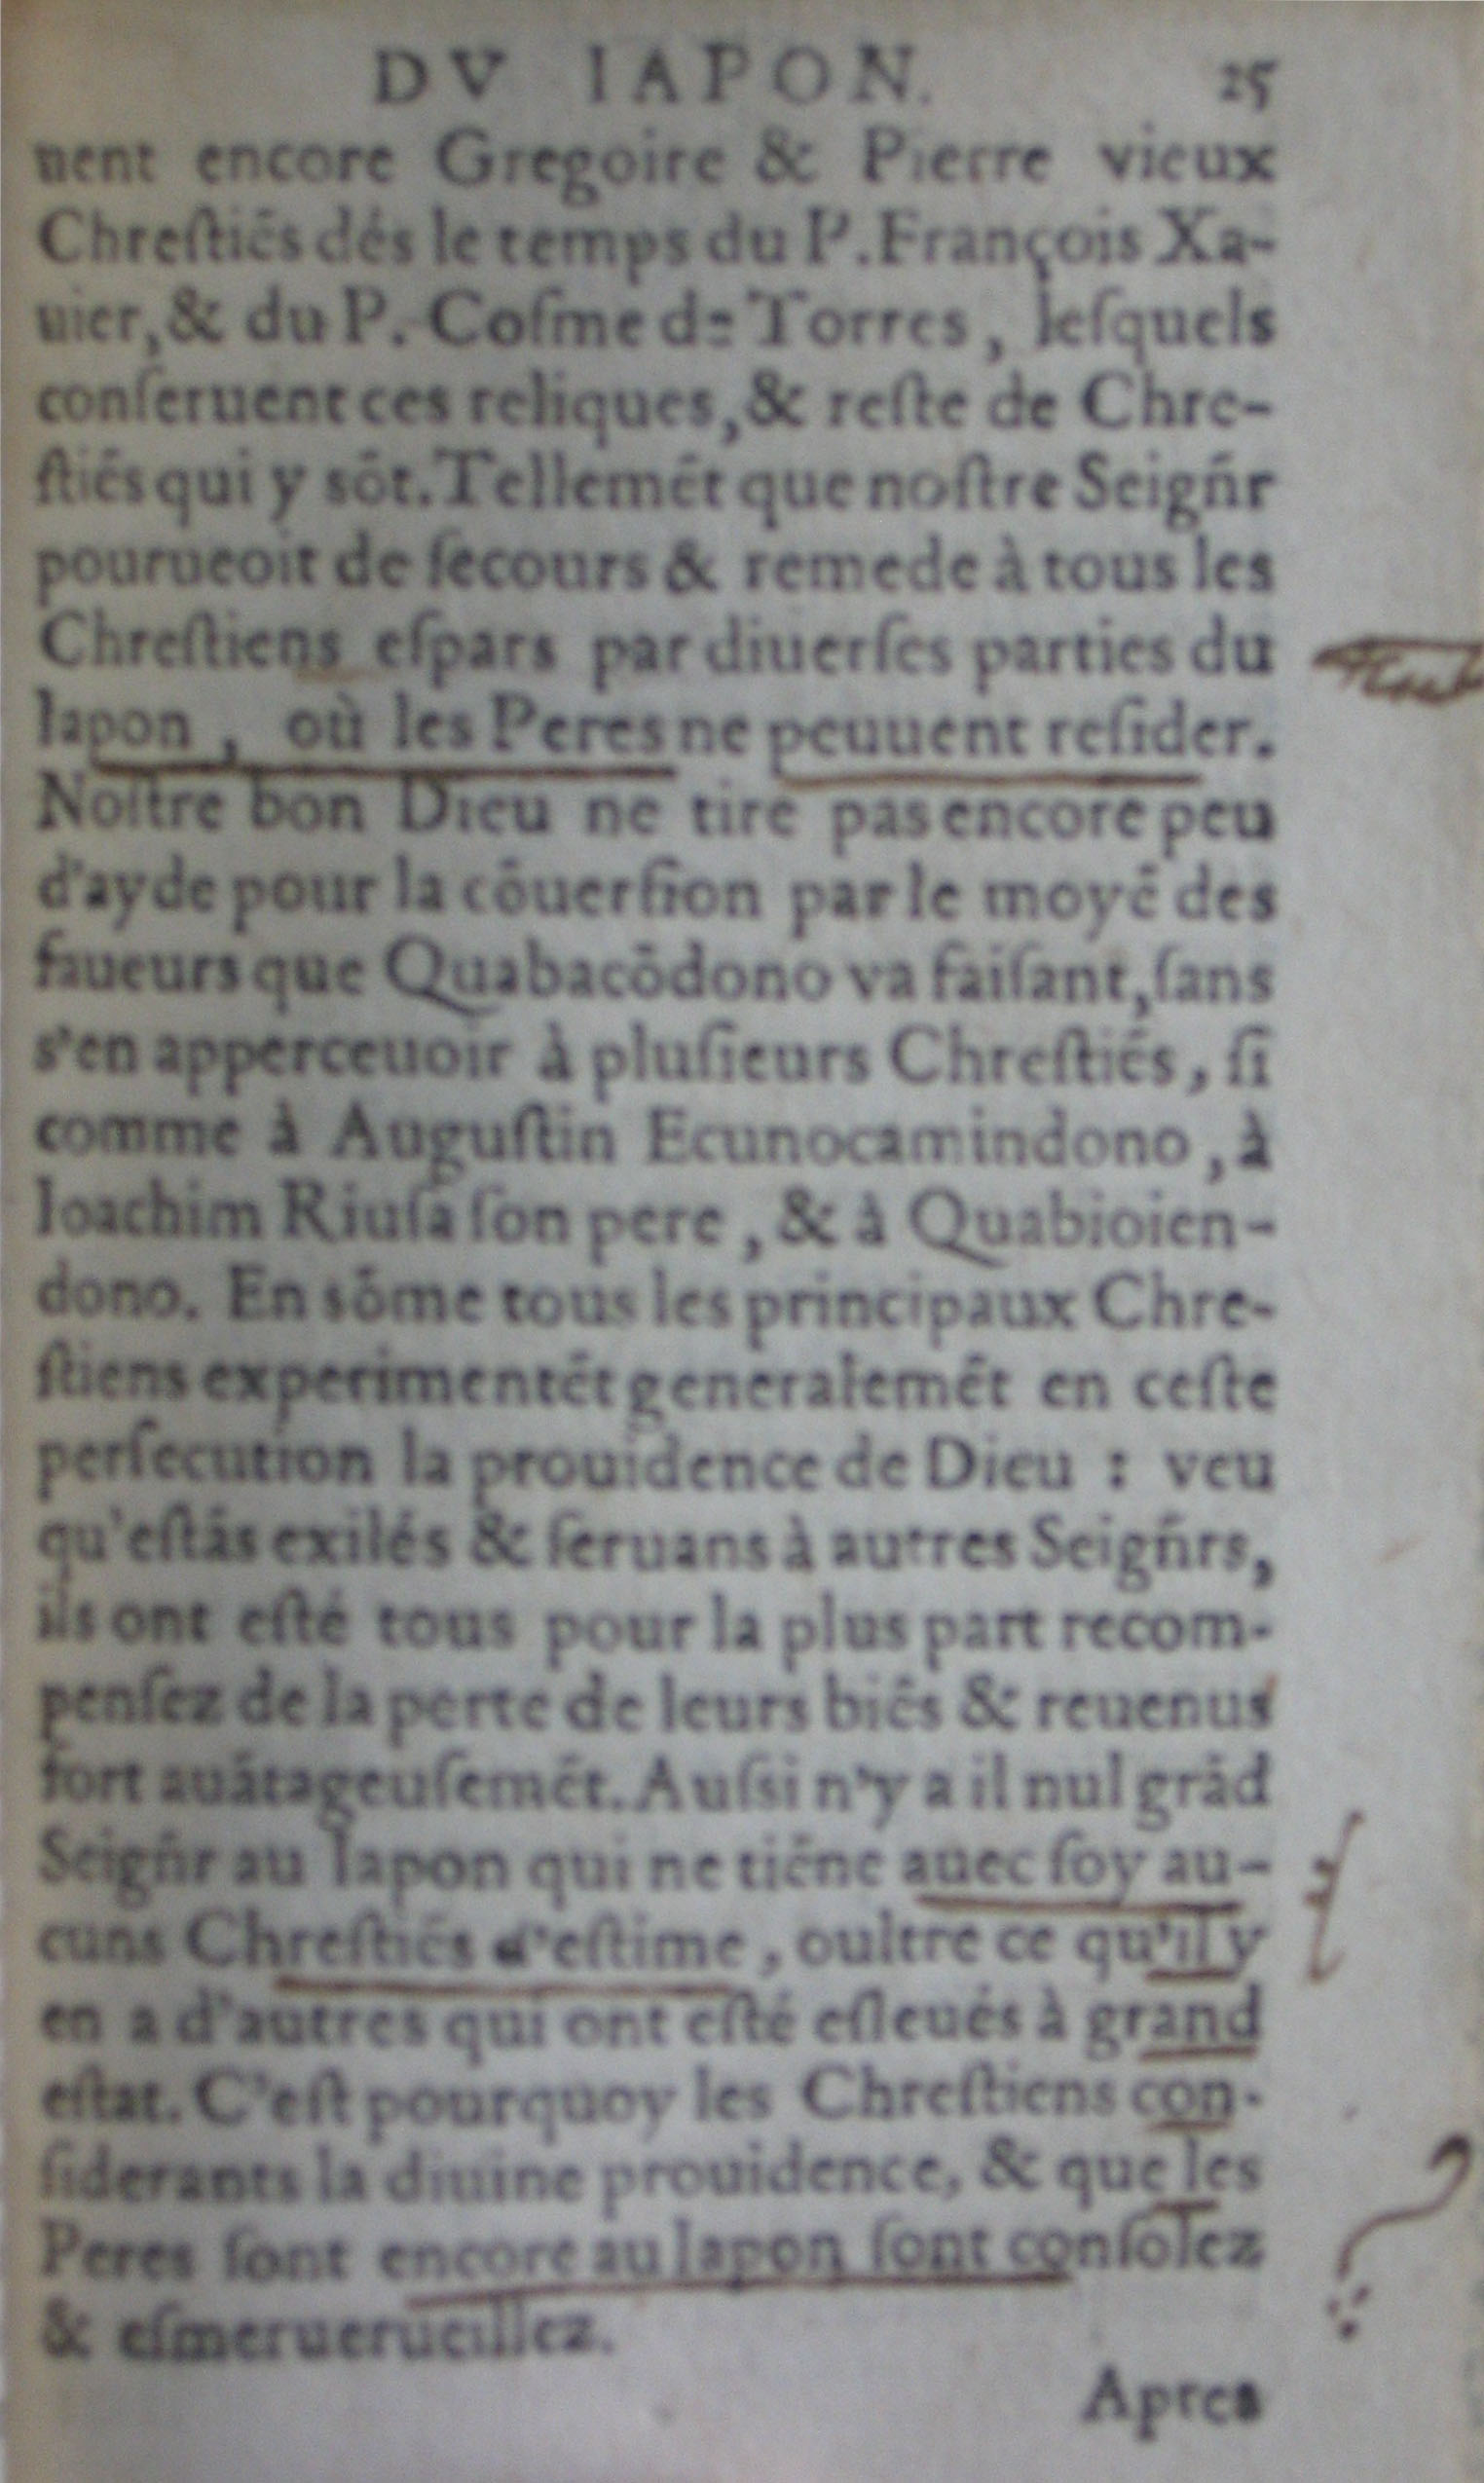 DV IAPON. 25
uent encore Gregoire & Pierre vieux
Chreſtiēs dés le temps du P. François Xa-
uier, & du P. Coſme de Torres, leſquels
conſeruent ces reliques, & reſte de Chre-
ſtiēs qui y sōt. Tellemēt que noſtre Seigñr
pourueoit de ſecours & remede à tous les
Chreſtiens eſpars par diuerſes parties du
Iapon, où les Peres ne peuuent reſider.
Noſtre bon Dieu ne tire pas encore peu
d'ayde pour la cōuerſion par le moyē des
faueurs que Quabacōdono va faiſant, ſans
s'en apperceuoir à pluſieurs Chreſtiēs, ſi
comme à Auguſtin Ecunocamindono, à
Ioachim Riuſa ſon pere, & à Quabioien-
dono. En sōme tous les principaux Chre-
ſtiens experimentēt generalemēt en ceſte
perſecution la prouidence de Dieu : veu
qu'eſtās exilés & ſeruans à autres Seigñrs,
ils ont eſté tous pour la plus part recom-
penſez de la perte de leurs biēs & reuenus
fort auātageuſemēt. Auſsi n'y a il nul grād
Seigñr au Iapon qui ne tiēne auec ſoy au-
cuns Chreſtiēs d'eſtime, oultre ce qu'il y
en a d'autres qui ont eſté eſleués à grand
eſtat. C'eſt pourquoy les Chreſtiens con-
ſiderants la diuine prouidence, & que les
Peres ſont encore au Iapon ſont conſolez
& eſmeruerueillez.
Apres